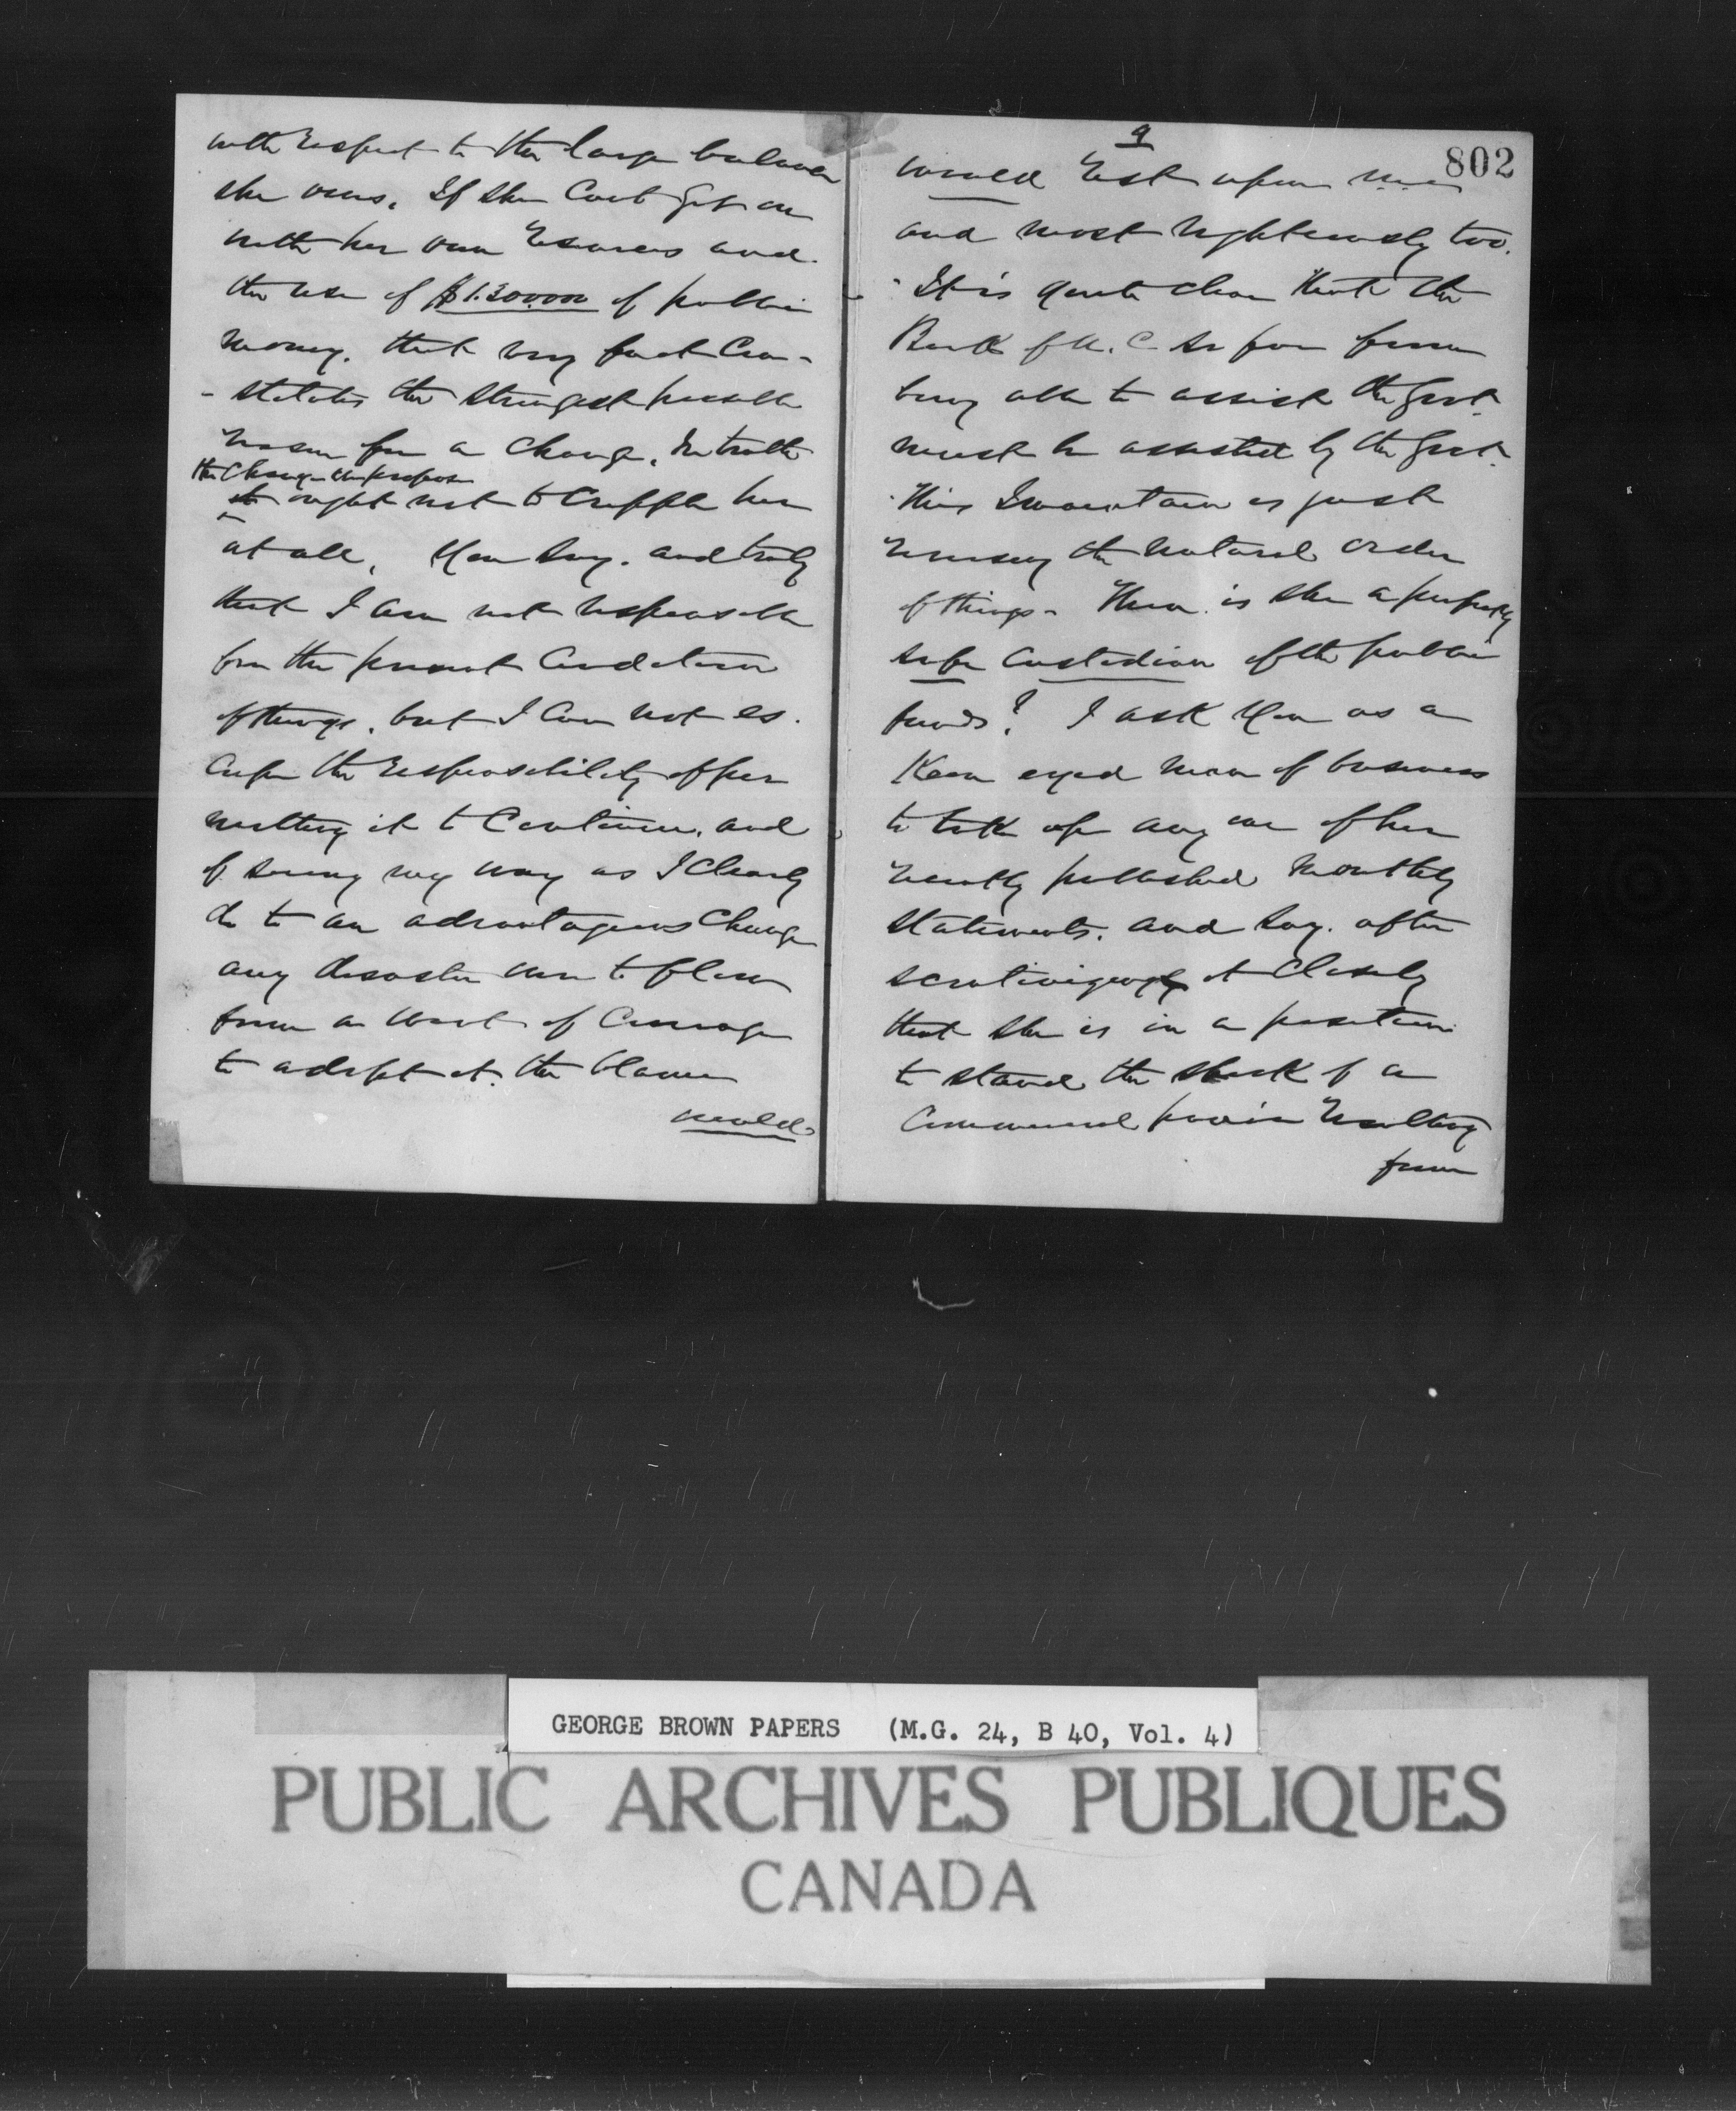 with respect to the large balance
she owes. If she Can't get on
with her own resources and
the use of $1.300.000 of public
money. that very fact Con-
-stitutes the strongest possible
reason for a change. In truth
the Change we propose
it ought not to Cripple her
at all. You say. and truly
that I am not responsible
for the present Condition
of things. but I Can not es.
Cape the responsibility of per
mitting it to Continue. and
if seeing my way as I Clearly
do to an advantageous Change
any disaster were to flow
from a want of Courage
to adopt it. the blame
would
9
802
would rest upon me
and most righteously too.
It is quite clear that the
Bank of U. C. so far from
being able to assist the Govt.
must be assisted by the Govt.
This I maintain is just
reversing the natural order
of things. Then is she a perfectly
safe Custodian of the public
funds? I ask you as a
Keen eyed man of business
to take up any one of her
recently published monthly
statements. and say. after
scrutinizing it Closely
that she is in a position
to stand the shock of a
Commercial panic resulting
from
GEORGE BROWN PAPERS (M.G. 24, B 40, Vol. 4)
PUBLIC ARCHIVES PUBLIQUES
CANADA